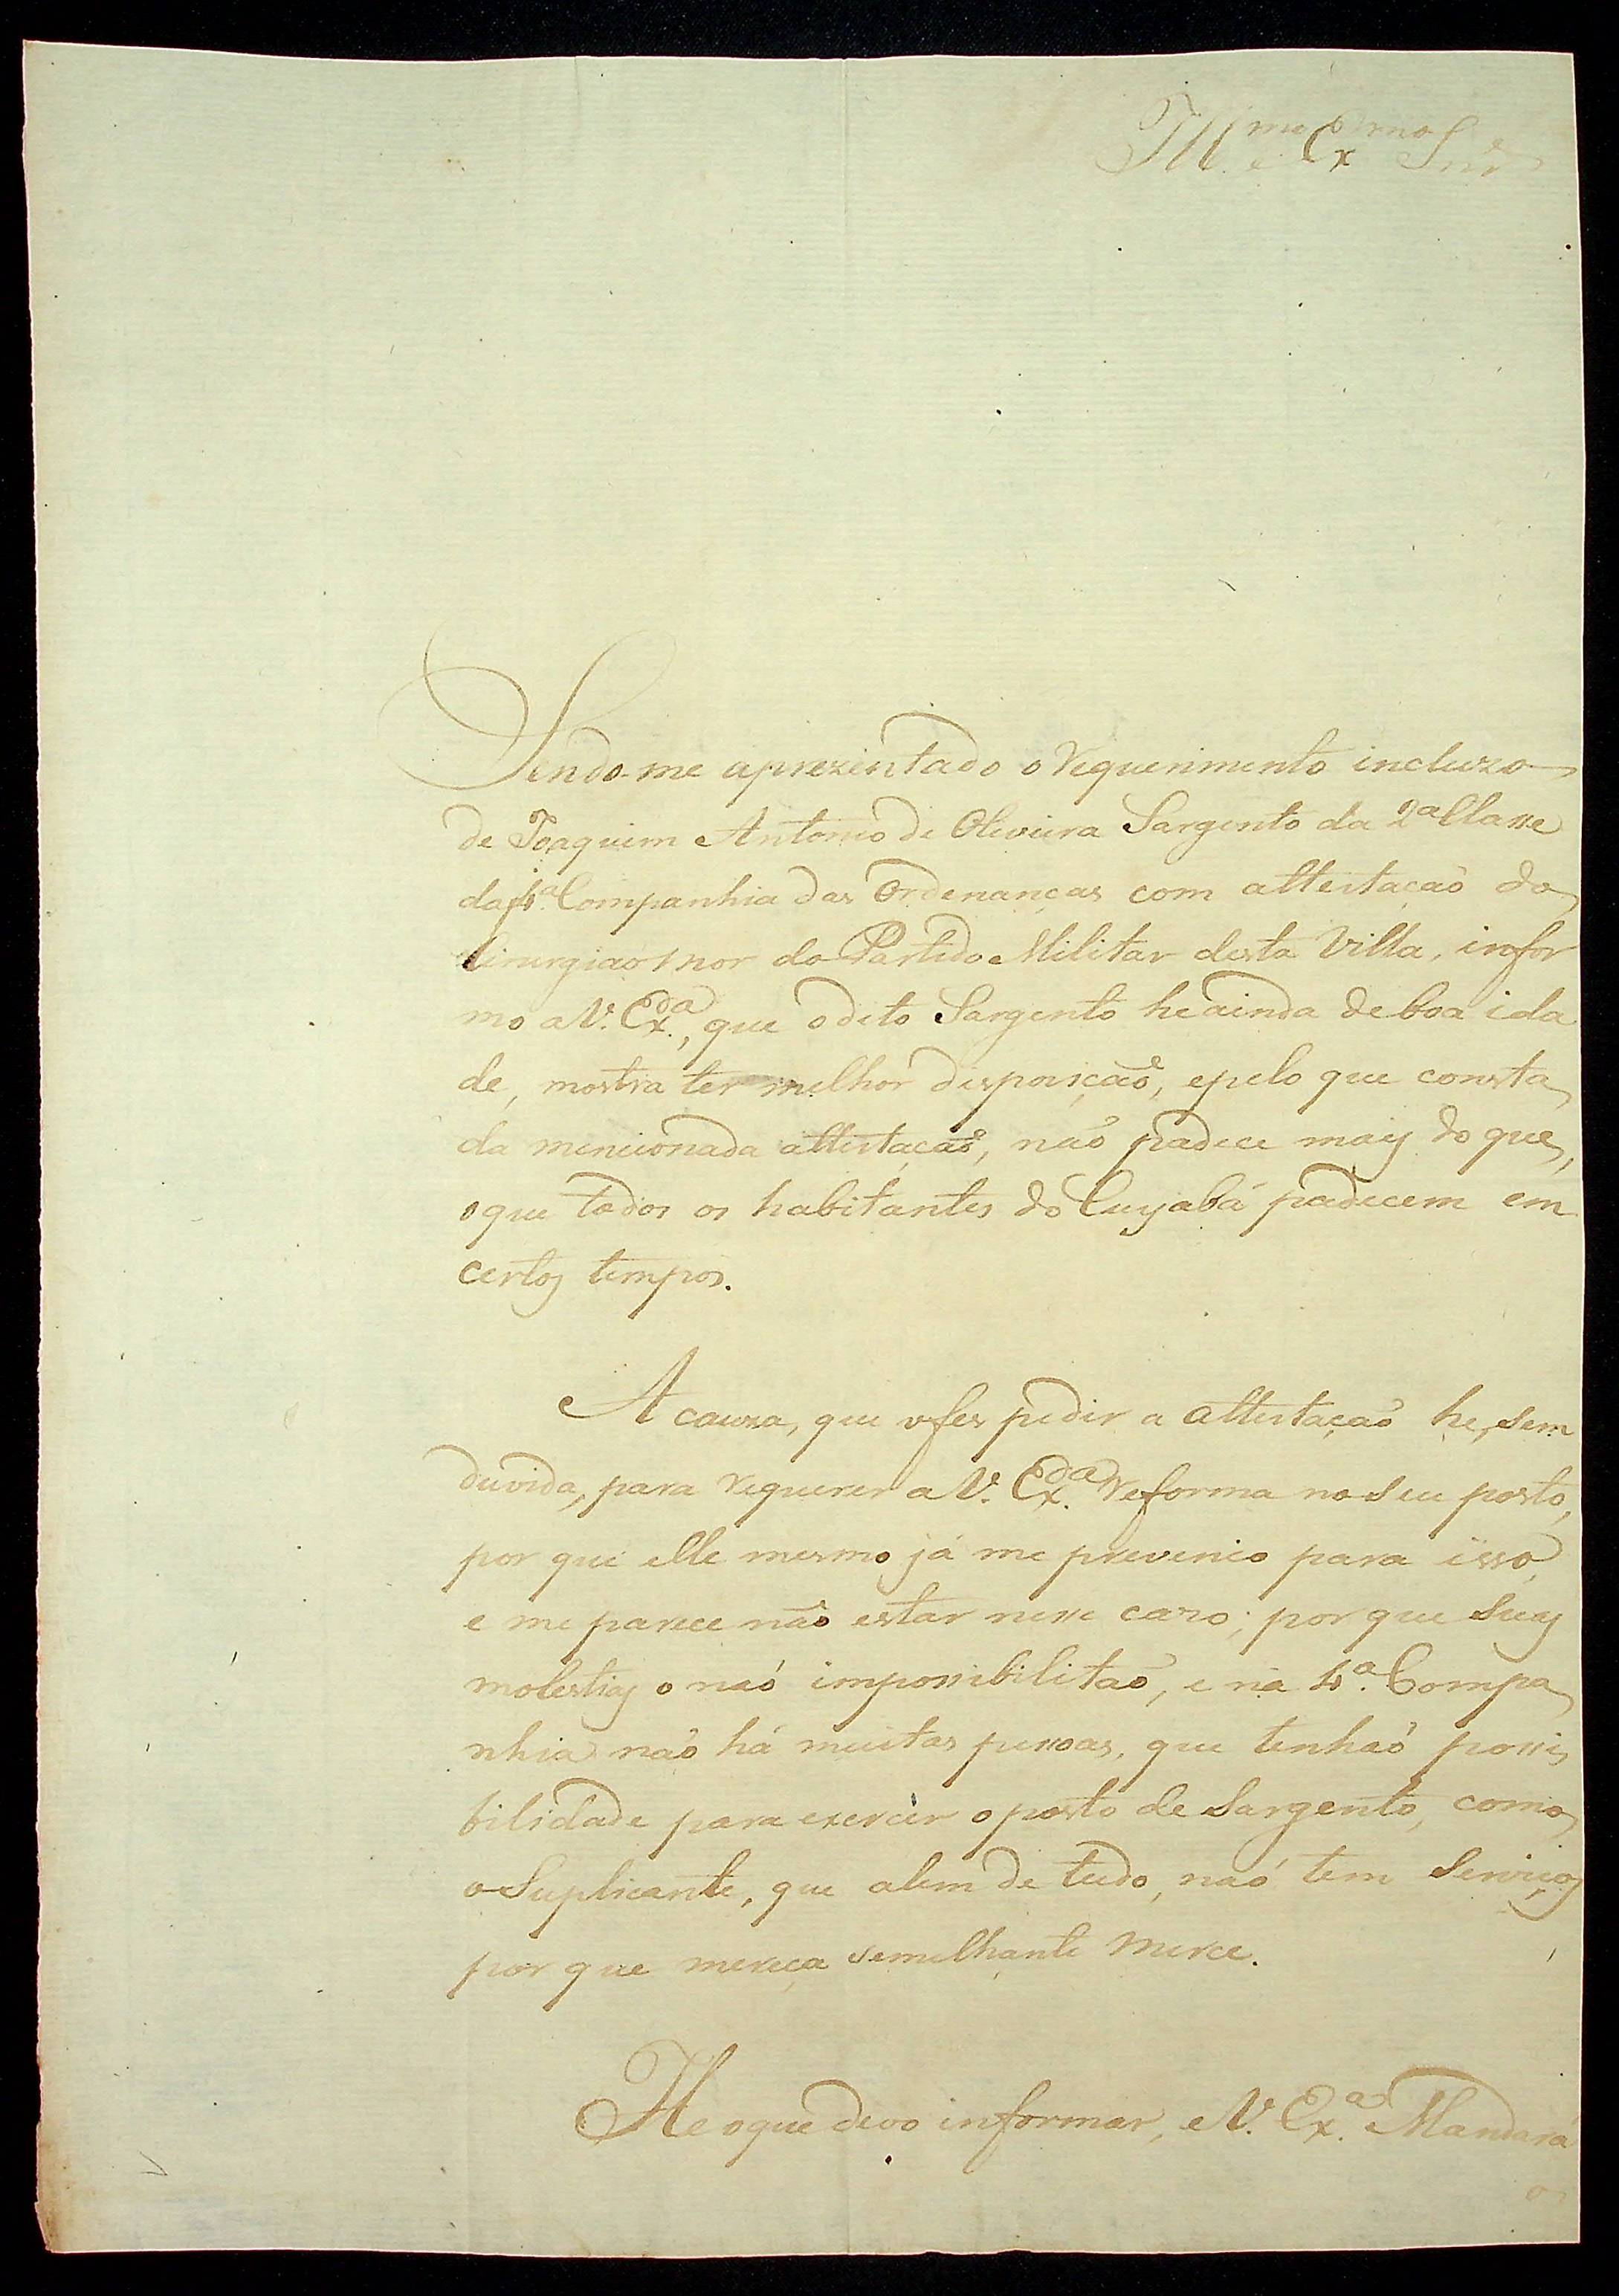 Ill.mo e Ex.mo Snr.
Sendo-me aprezentado o requerimento incluzo
de Joaquim Antonio de Oliveira Sargento da 2ª Classe
da 4ª Companhia das Ordenanças com attestação do
Cirurgiao mor do Partido Militar desta Villa, infor
mo a V. Ex.ª, que o dito Sargento he ainda de boa ida
de, mostra ter melhor dispozição, e pelo que consta
da mencionada attestação, não padece mais do que,
o que todos os habitantes do Cuyabá padecem em
certos tempos.
A cauza, que o fes pedir a attestação he, sem
duvida, para requerer a V. Ex.ª reforma no seu posto,
por que elle mesmo já me prevenio para isso,
e me parece não estar nesse cazo; por que suas
molestias o não impossibilitão, e na 4ª Compa
nhia não há muitas pessoas, que tenhão possi
bilidade para exercer o posto de Sargento, como
o Suplicante, que alem de tudo, não tem serviços
por que mereça semelhante merce.
He o que devo informar, e V. Ex.ª Mandará
o